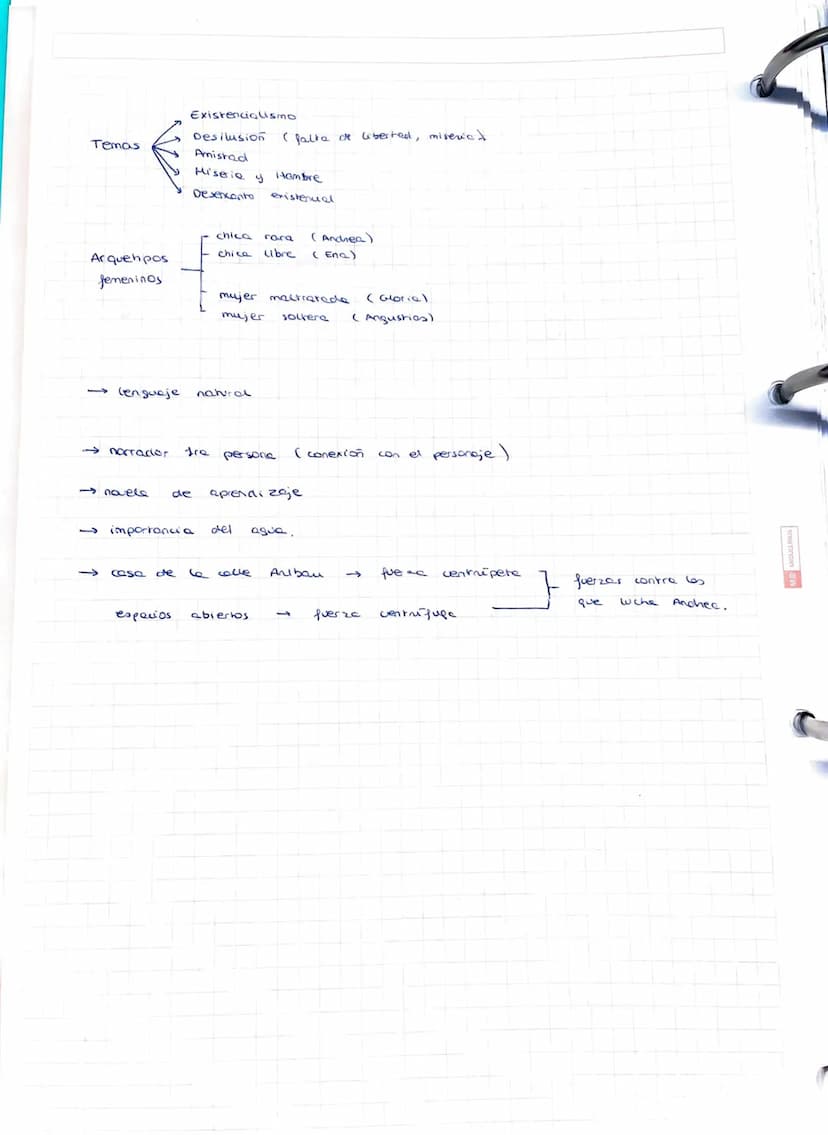 Existencialismo
Temas
Desilusión (falta de libertad, miseria)
Amistad
Miseria y Hambre
Desencanto existencial
chica rara (Andrea)
Arquetipos
chica libre (Ena)
femeninos
mujer maltratada (Gloria)
mujer soltera (Angustias)
→ lenguaje natural
→ narrador 1ra persona (conexión con el personaje)
→ novela de aprendizaje
→ importancia del agua.
→ casa de la calle Aribau → fuerza centrípeta
fuerzas contra las
que lucha Andrea.
espacios abiertos → fuerza centrífuga